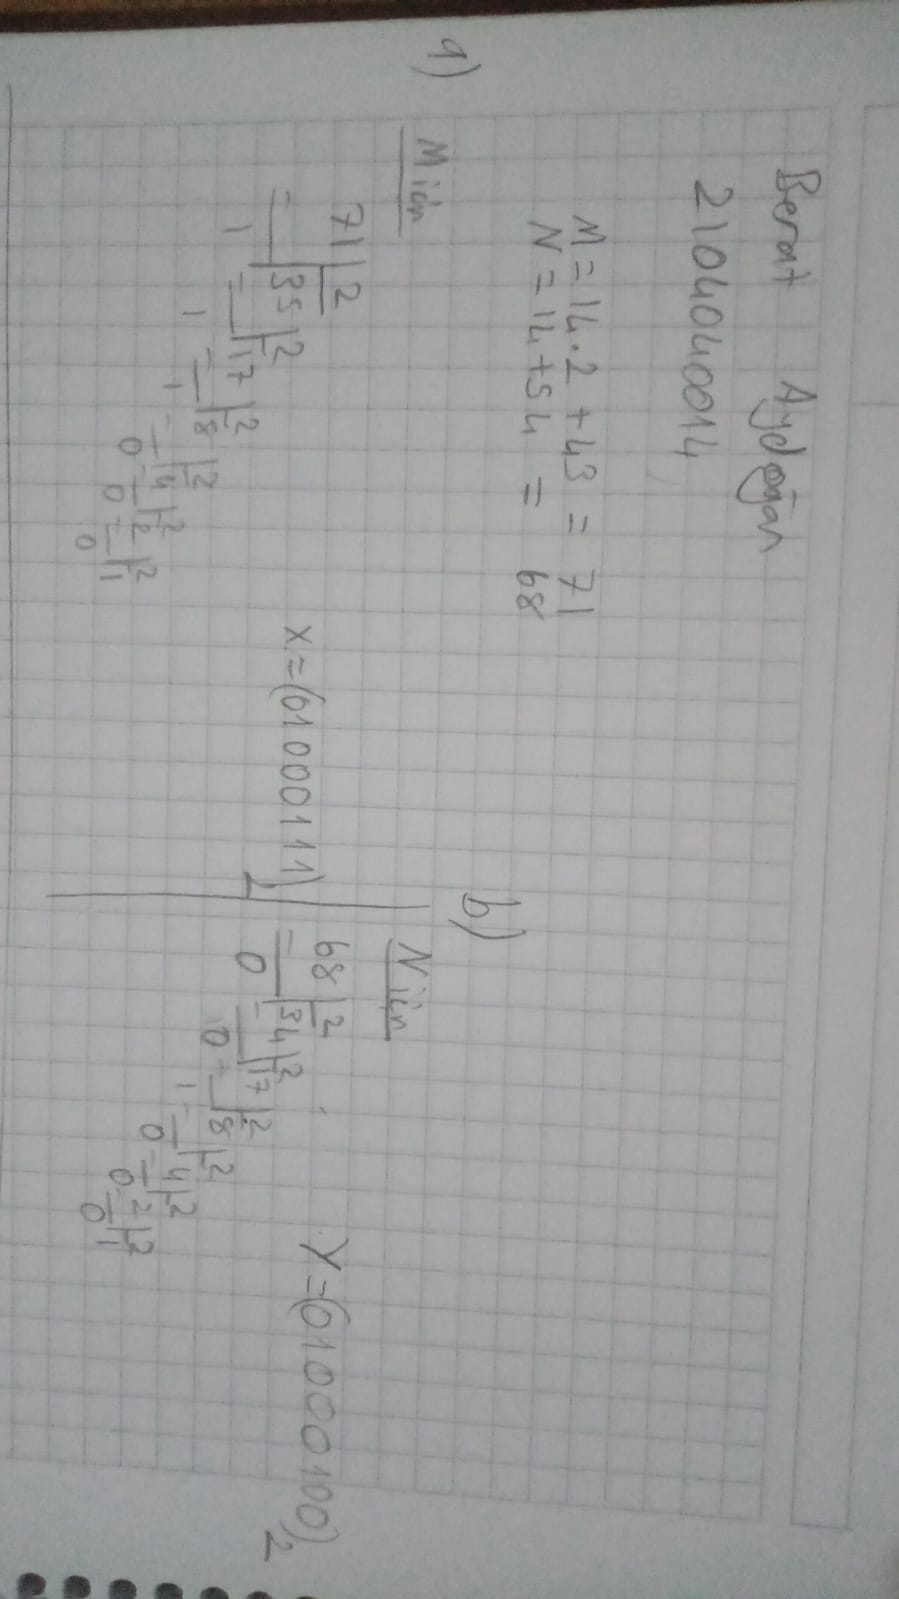 Berat Aydoğan
2104040014
M = 14.2 + 43 = 71
N = 14 + 54 = 68
a)
M için
71 | 2
35 | 2
1
17 | 2
1
8 | 2
1
4 | 2
0
2 | 2
0
1
0
X = (01000111)2
b)
N için
68 | 2
34 | 2
0
17 | 2
0
8 | 2
1
4 | 2
0
2 | 2
0
1
0
Y = (01000100)2